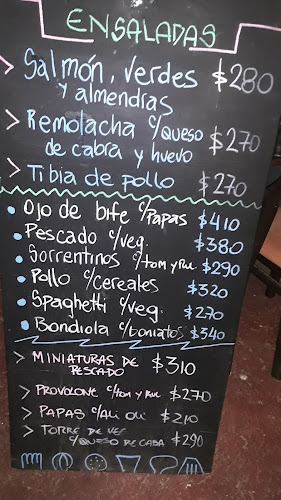 ENSALADAS
> Salmón, verdes $280
y almendras
> Remolacha c/queso $270
de cabra y huevo
> Tibia de pollo $270
• Ojo de bife c/PAPAS $410
• Pescado c/veg. $380
• Sorrentinos c/tom y Rue $290
• Pollo c/cereales $320
• Spaghetti c/veg. $270
• Bondiola c/boniatos $340
> MINIATURAS DE $310
PESCADO
> PROVOLONE c/tom y Rue $270
> PAPAS c/Ali oli $210
> TORRE DE VEG $290
c/QUESO DE CABA